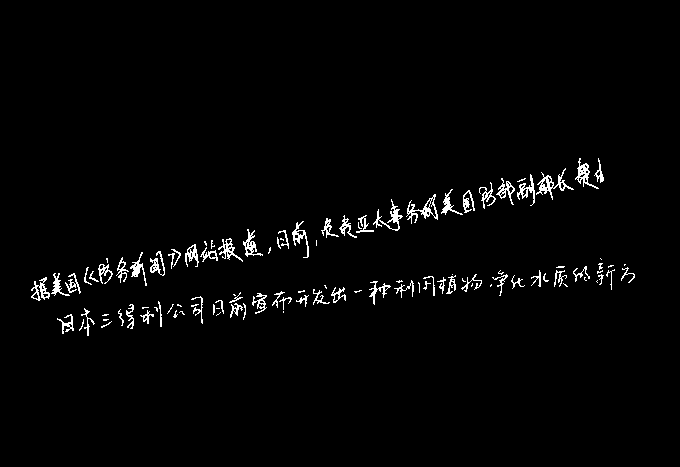 据美国《防务新闻》网站报道,日前,负责亚太事务的美国防部副部长费
日本三得利公司日前宣布开发出一种利用植物净化水质的新方